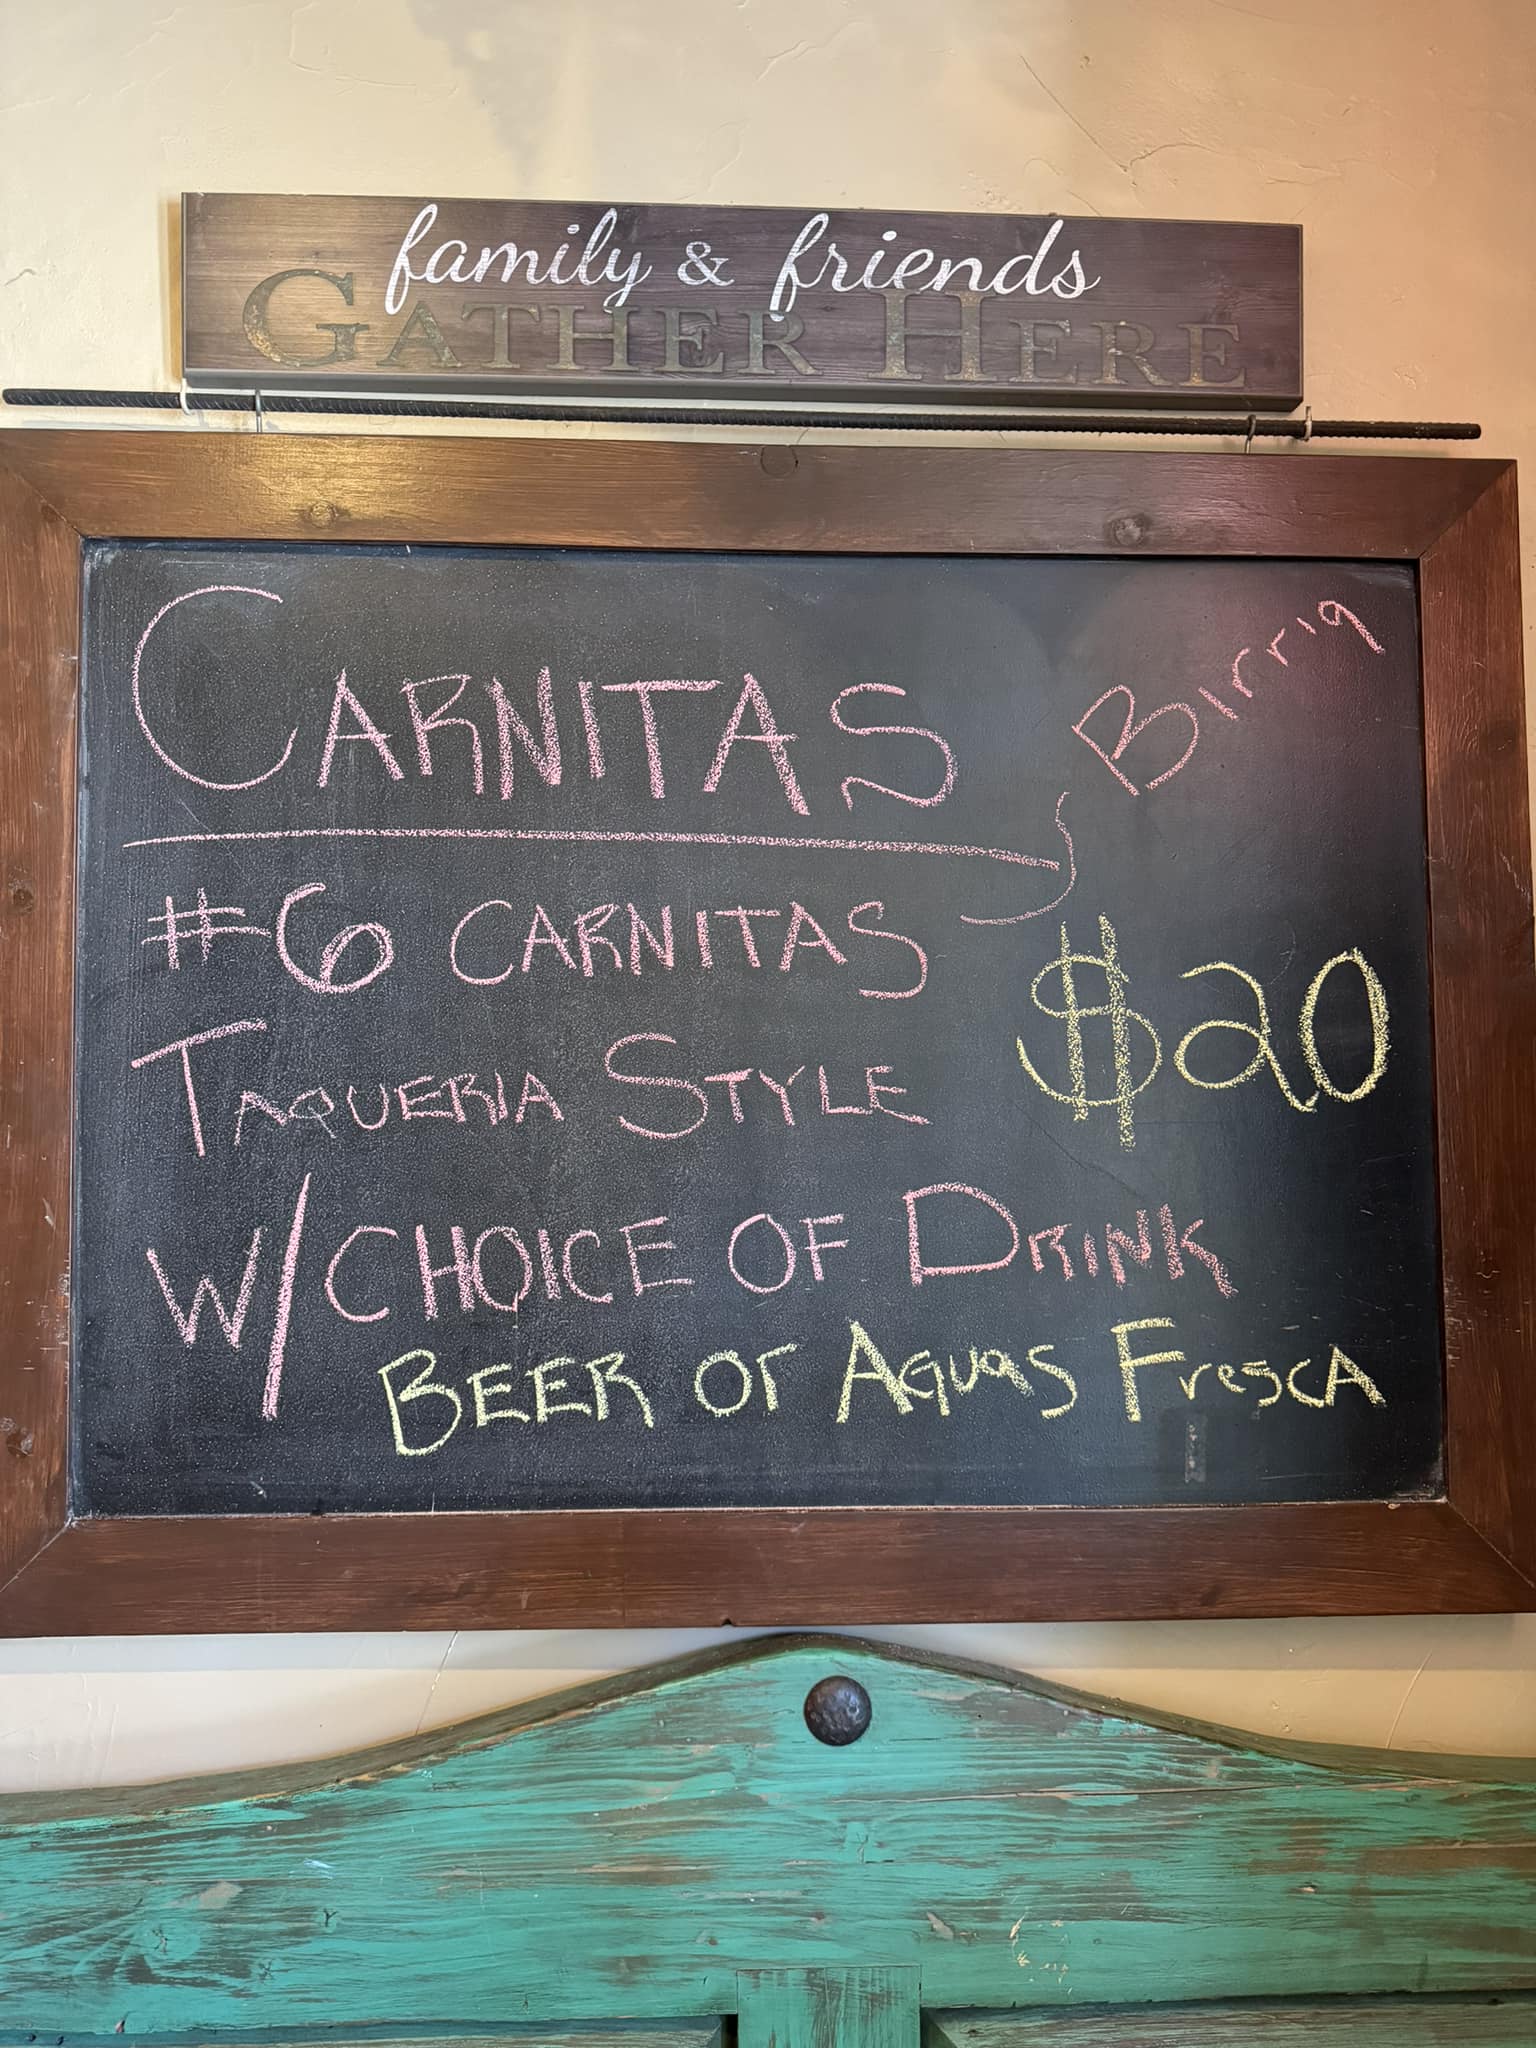 family & friends
GATHER HERE
CARNITAS
Birria
#6 CARNITAS
TAQUERIA STYLE
$20
W/ CHOICE OF DRINK
BEER or AGUAS FrescA